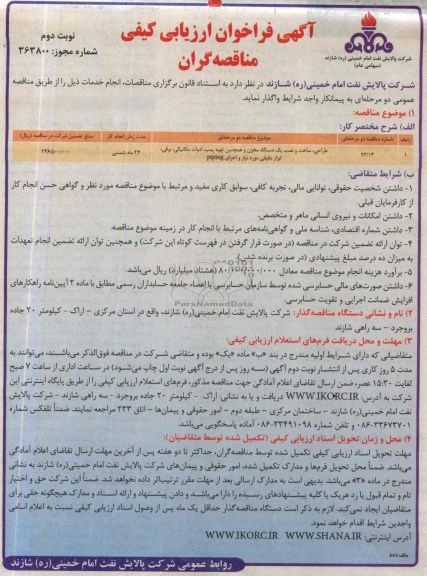 آگهی فراخوان ارزیابی کیفی
مناقصه‌گران
نوبت دوم
شماره مجوز: ۳۶۳۸۰۰
شرکت پالایش نفت امام خمینی (ره) شازند
(سهامی عام)
شرکت پالایش نفت امام خمینی(ره) شازند در نظر دارد به استناد قانون برگزاری مناقصات، انجام خدمات ذیل را از طریق مناقصه
عمومی دو مرحله‌ای به پیمانکار واجد شرایط واگذار نماید.
۱) موضوع مناقصه:
الف) شرح مختصر کار:
ردیف شماره مناقصه دو مرحله‌ای موضوع مناقصه دو مرحله‌ای مدت زمان انجام کار مبلغ تضمین شرکت در مناقصه (ریال)
۱ طراحی، ساخت و نصب یک دستگاه مخزن و همچنین تهیه پمپ، ادوات مکانیکی، برقی، ۲۴ ماه شمسی
ابزار دقیقی مورد نیاز و اجرای piping
ب) شرایط متقاضی:
۱- داشتن شخصیت حقوقی، توانایی مالی، تجربه کافی، سوابق کاری مفید و مرتبط با موضوع مناقصه مورد نظر و گواهی حسن انجام کار
از کارفرمایان قبلی.
۲- داشتن امکانات و نیروی انسانی ماهر و متخصص.
۳- داشتن شماره اقتصادی، شناسه ملی و گواهی‌نامه‌های مرتبط با انجام کار در زمینه موضوع مناقصه.
۴- توان ارائه تضمین شرکت در مناقصه (در صورت قرار گرفتن در فهرست کوتاه این شرکت) و همچنین توان ارائه تضمین انجام تعهدات
به میزان ده درصد مبلغ پیشنهادی (در صورت برنده شدن).
۵- برآورد هزینه انجام موضوع مناقصه معادل ۸۰/۰۰۰/۰۰۰/۰۰۰ (هشتاد میلیارد) ریال می‌باشد.
۶- داشتن صورت‌های مالی حسابرسی شده توسط سازمان حسابرسی یا اعضاء جامعه حسابداران رسمی مطابق با ماده ۲ آیین‌نامه راهکارهای
افزایش ضمانت اجرایی و تقویت حسابرسی.
۲) نام و نشانی دستگاه مناقصه‌گذار: شرکت پالایش نفت امام خمینی(ره) شازند، واقع در استان مرکزی - اراک - کیلومتر ۲۰ جاده
بروجرد - سه راهی شازند
۳) مهلت و محل دریافت فرم‌های استعلام ارزیابی کیفی:
متقاضیانی که دارای شرایط اولیه مندرج در بند «ب» ماده «یک» بوده و متقاضی شرکت در مناقصه فوق‌الذکر می‌باشند، می‌توانند به
مدت ۵ روز کاری پس از انتشار نوبت دوم آگهی (سه روز پس از درج آگهی نوبت اول چاپ می‌شود) در ساعت اداری از ساعت ۷ صبح
لغایت ۱۵:۳۰ عصر، ضمن ارسال تقاضای اعلام آمادگی جهت مناقصه مذکور، فرم‌های استعلام ارزیابی کیفی را از طریق پایگاه اینترنتی این
شرکت به آدرس WWW.IKORC.IR دریافت و یا به نشانی: اراک - کیلومتر ۲۰ جاده بروجرد - سه راهی شازند - شرکت پالایش
نفت امام خمینی(ره) شازند - ساختمان مرکزی - طبقه دوم - امور حقوقی و پیمان‌ها - اتاق ۲۳۳ مراجعه نمایند. ضمناً تلفکس شماره
۰۸۶-۳۳۶۷۳۷۰۱ و تلفن شماره ۰۸۶-۳۳۴۹۱۰۹۸ آماده پاسخگویی می‌باشد.
۴) محل و زمان تحویل اسناد ارزیابی کیفی (تکمیل شده توسط متقاضیان):
مهلت تحویل اسناد ارزیابی کیفی تکمیل شده توسط مناقصه‌گران، حداکثر تا دو هفته پس از آخرین مهلت ارسال تقاضای اعلام آمادگی
می‌باشد. ضمناً محل تحویل فرم‌ها و مدارک تکمیل شده، امور حقوقی و پیمان‌های شرکت پالایش نفت امام خمینی(ره) شازند به نشانی
مندرج در ماده «۳» می‌باشد. بدیهی است به مدارک ارسالی بعد از مهلت مقرر ترتیب‌اثر داده نخواهد شد. ضمناً این شرکت حق و اختیار
تام و تمام قبول یا رد هر یک یا کلیه پیشنهادهای رسیده را دارا می‌باشد و دادن پیشنهاد و ارائه اسناد و مدارک هیچگونه حقی برای
متقاضیان ایجاد نمی‌کند. لازم به ذکر است دستگاه مناقصه‌گذار حداقل یک ماه پس از وصول اسناد ارزیابی کیفی نسبت به اعلام اسامی
واجدین شرایط اقدام خواهد نمود.
آدرس اینترنتی: WWW.IKORC.IR WWW.SHANA.IR
روابط عمومی شرکت پالایش نفت امام خمینی (ره) شازند
ParsNamadData